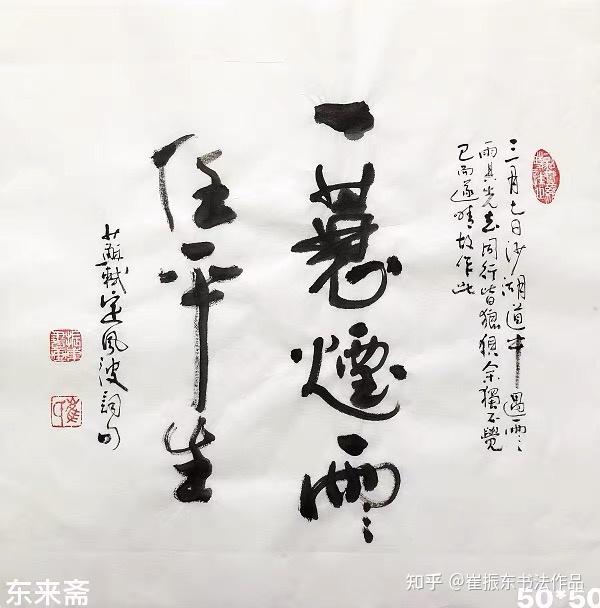 三月七日沙湖道中遇雨
雨具先去同行皆狼狽余獨不覺
已而遂晴故作此
一蓑煙雨
任平生
蘇軾定風波詞句
东来斋
知乎 @崔振东书法作品
50*50